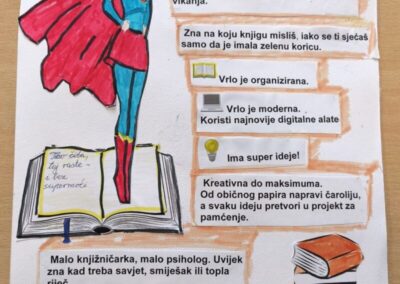 vikanja.
Zna na koju knjigu misliš, iako se ti sjećaš
samo da je imala zelenu koricu.
Vrlo je organizirana.
Vrlo je moderna.
Koristi najnovije digitalne alate
Ima super ideje!
Tko čita,
taj raste -
i bez
supermoći
Kreativna do maksimuma.
Od običnog papira napravi čaroliju,
a svaku ideju pretvori u projekt za
pamćenje.
Malo knjižničarka, malo psiholog. Uvijek
zna kad treba savjet, smiješak ili topla
riječ.